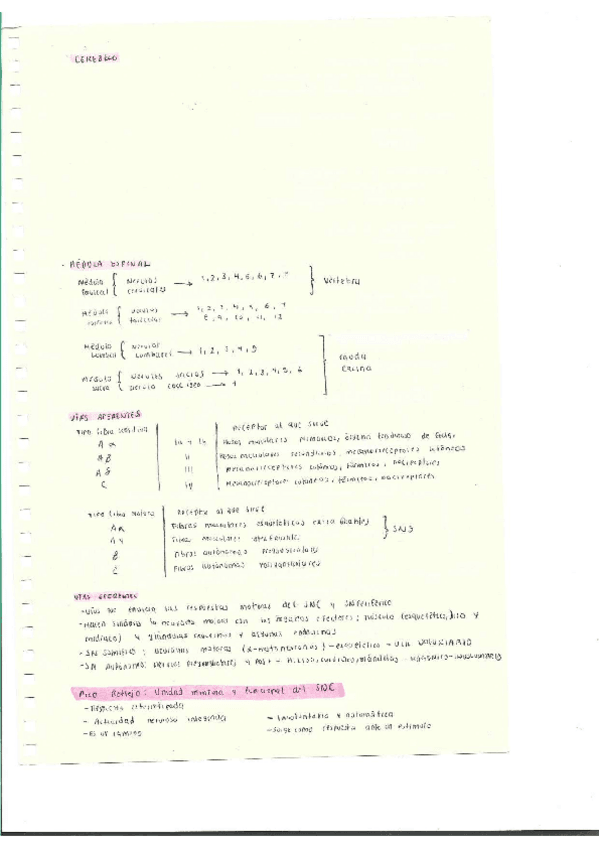 CEREBRO
- MÉDULA ESPINAL
Médula { Nervios → 1, 2, 3, 4, 5, 6, 7, 8 } Vértebra
cervical { cervicales
Médula { Nervios → 1, 2, 3, 4, 5, 6, 7
{ 8, 9, 10, 11, 12
Médula { Nervios → 1, 2, 3, 4, 5
lumbar { lumbares
cauda
equina
Médula { Nervios → 1, 2, 3, 4, 5, 6
sacra { nervio coccígeo → 1
VÍAS AFERENTES
Tipo fibra sensitiva | | Receptor al que sirve
A α | Ia y Ib | Husos musculares primarios, órgano tendinoso de Golgi,
A β | II | Husos musculares secundarios, mecanorreceptores cutáneos
A δ | III | Mecanorreceptores cutáneos, térmicos, nociceptores
C | IV | Mecanorreceptores cutáneos, térmicos, nociceptores
Tipo fibra motora | Receptor al que sirve
Aα | Fibras musculares esqueléticas extrafusales } SNS
Aγ | Fibras musculares intrafusales
B | Fibras autónomas preganglionares
C | Fibras autónomas posganglionares
VÍAS EFERENTES
- Vías que envían las respuestas motoras del SNC y SN Periférico
- Hacen sinapsis la neurona motora con los órganos efectores: músculo (esquelético, liso y
cardíaco) y glándulas exocrinas y algunas endocrinas
- SN somático: neuronas motoras (α-motoneuronas) - esquelético - VÍA VOLUNTARIA
- SN autónomo: nervios preganglionares y pos - - involuntario
Arco Reflejo: Unidad mínima y funcional del SNC
- Respuesta estereotipada
- Actividad nerviosa integrada
- Involuntaria y automática
- Surge como respuesta ante un estímulo